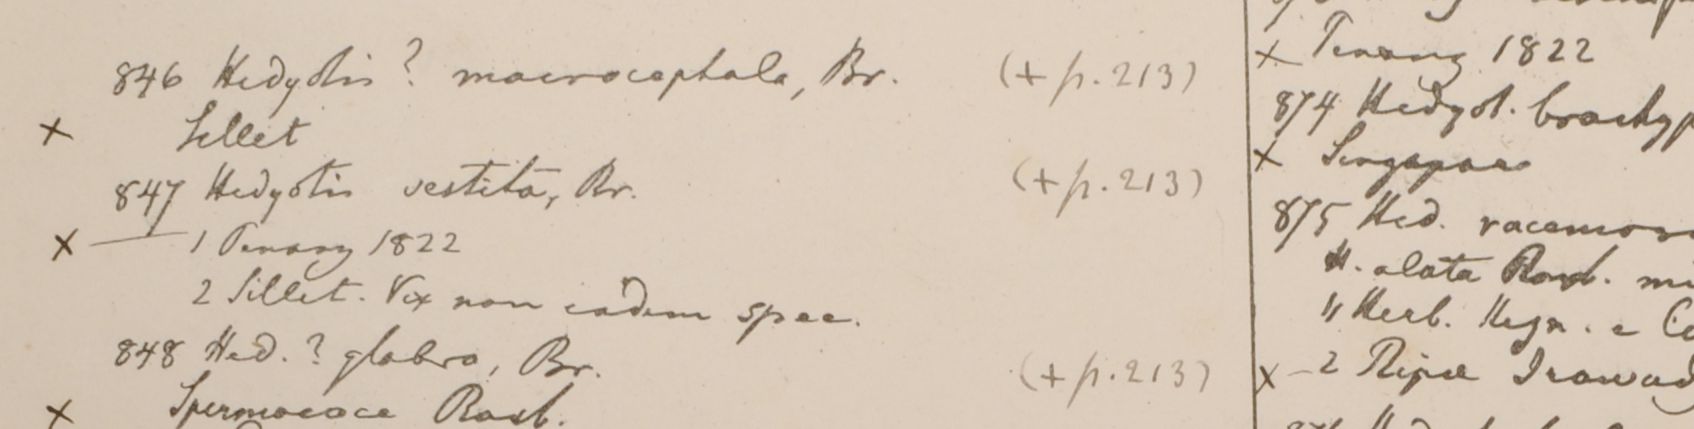 846 Hedyotis? macrocephala, Br. (+ p. 213)
× Sillet
847 Hedyotis vestita, Br. (+ p. 213)
× — 1 Penang 1822
2 Sillet. Vix non eadem spec.
848 Hed. ? glabra, Br. (+ p. 213)
× Spermacoce Roxb.
× Penang 1822
874 Hedyot. brachyp
× Singapore
875 Hed. racemos
H. alata Roxb.
" Herb. Hegn. e
× – 2 Ripa Irawad